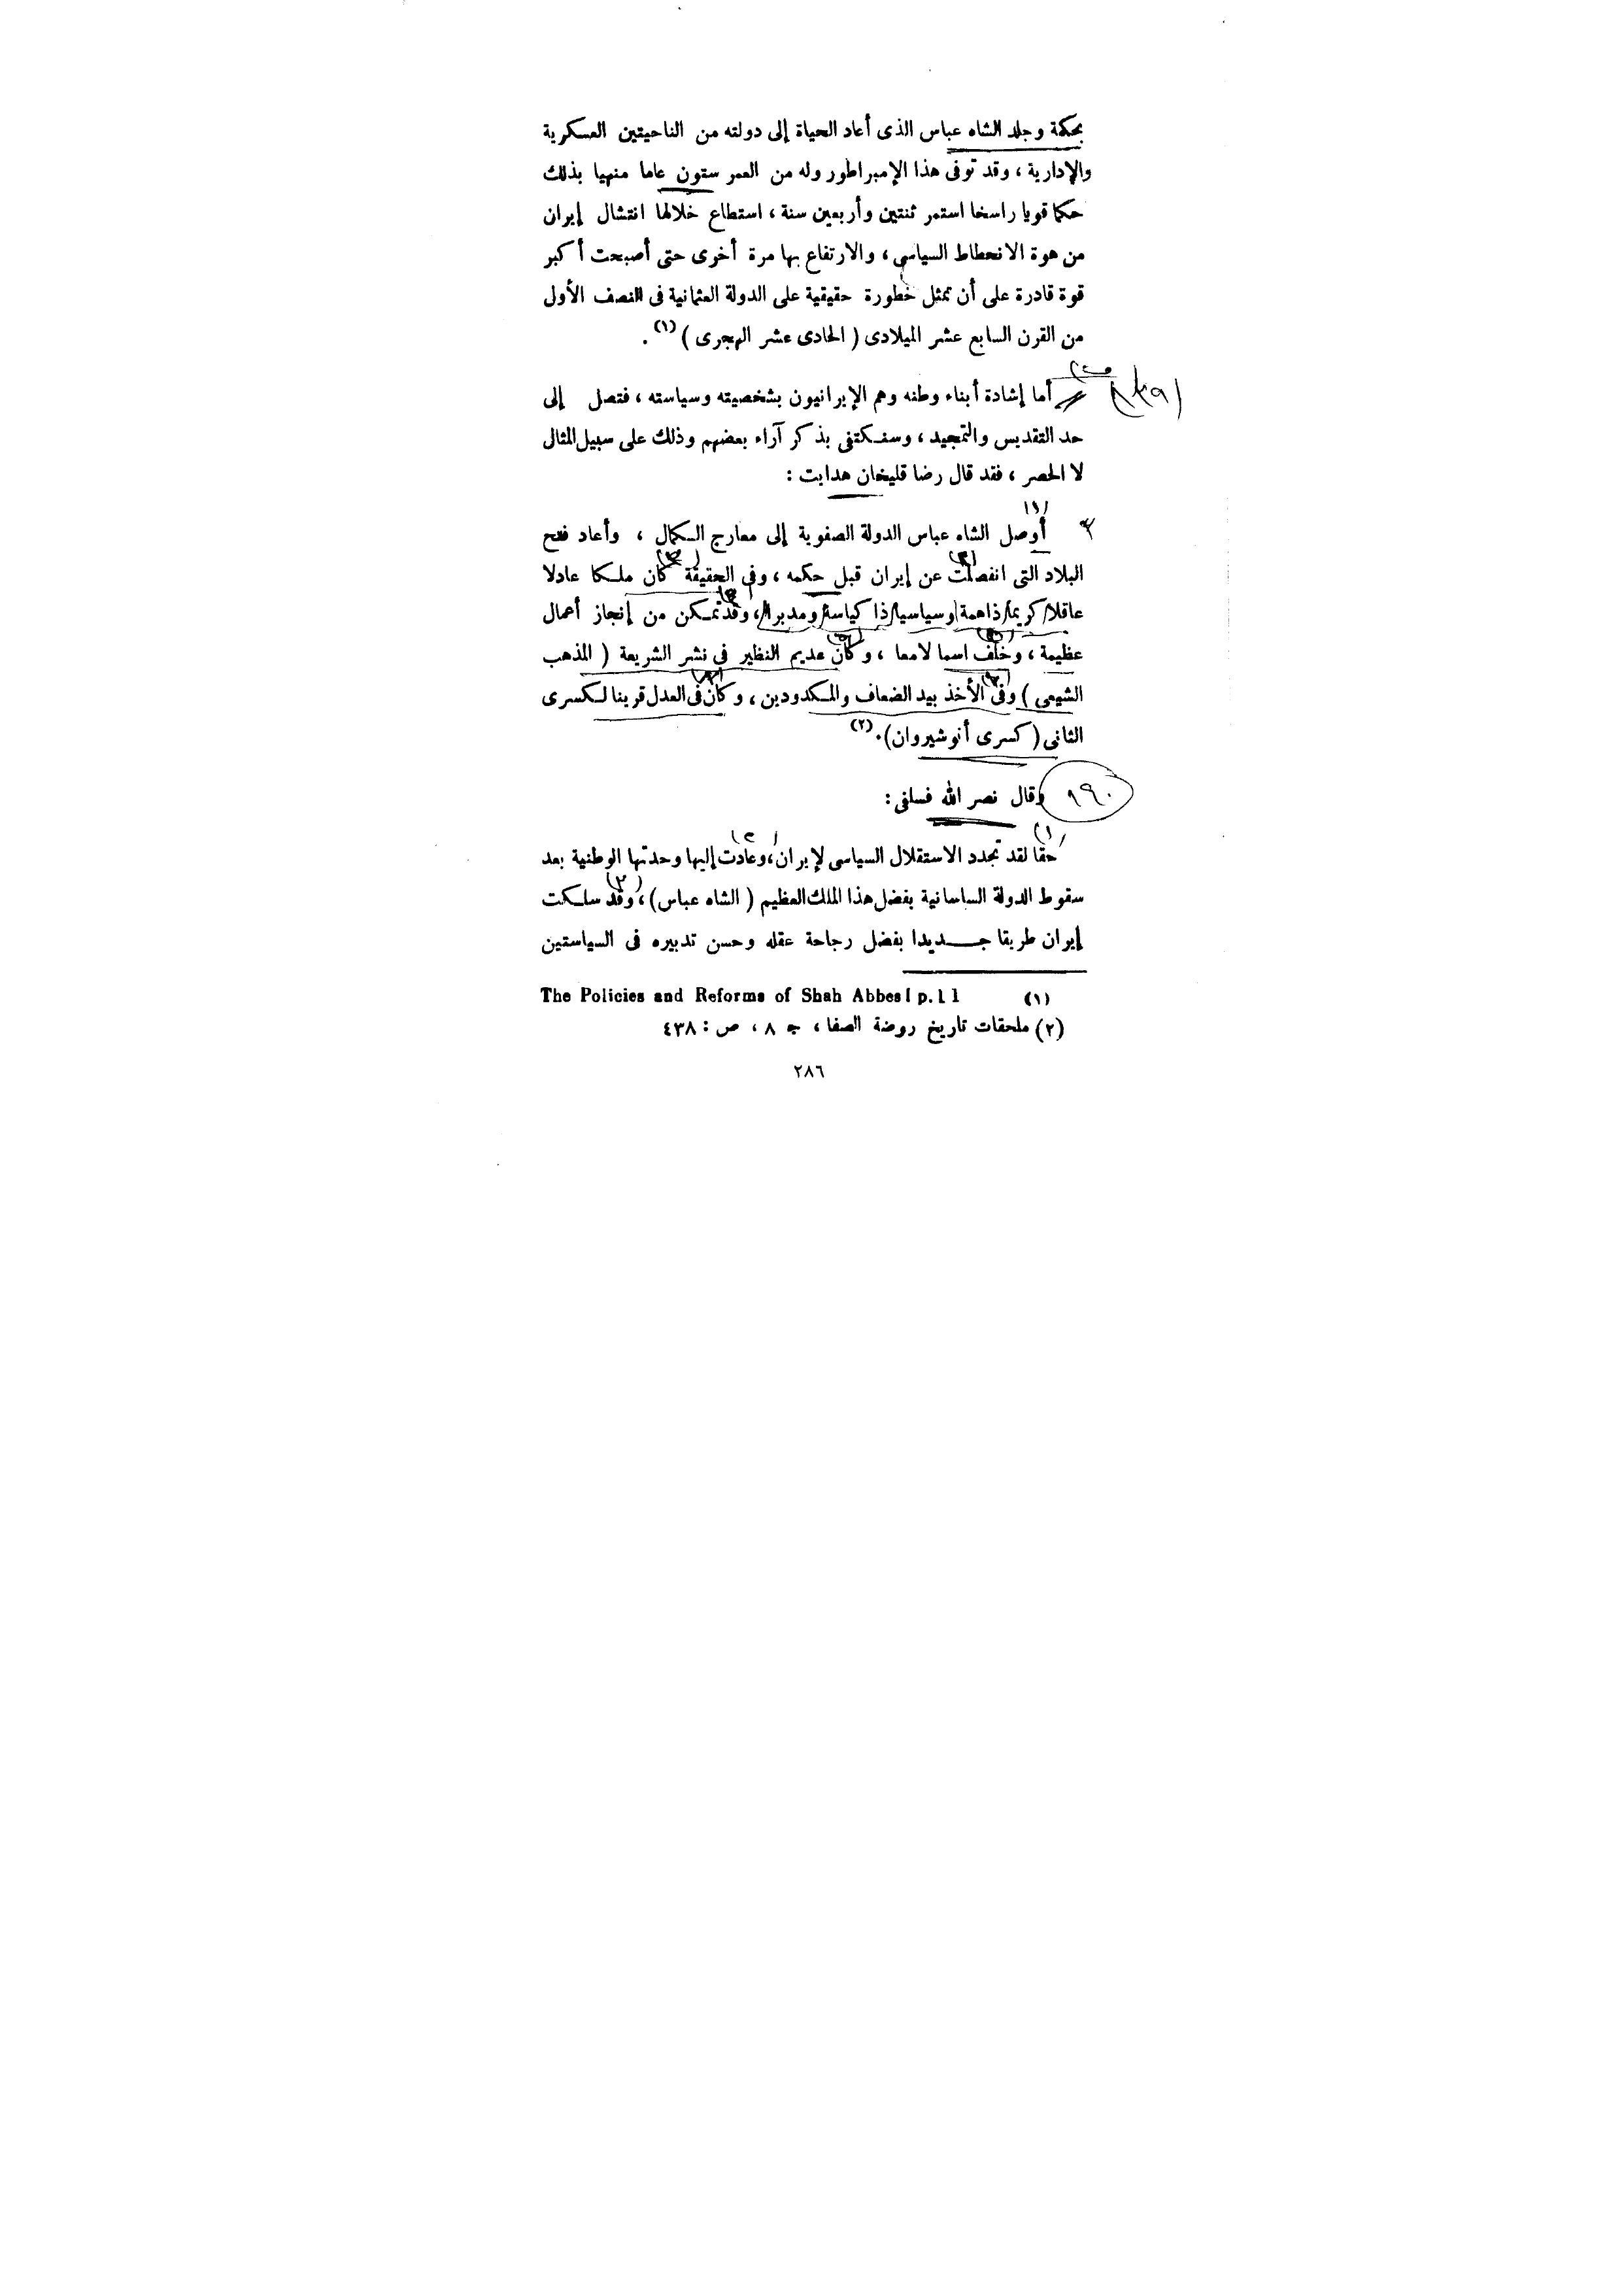 بحكمة وجلد الشاه عباس الذى أعاد الحياة إلى دولته من الناحيتين العسكرية
والإدارية ، وقد توفى هذا الإمبراطور وله من العمر ستون عاما منهيا بذلك
حكما قويا راسخا استمر ثنتين وأربعين سنة ، استطاع خلالها انتشال إيران
من هوة الانحطاط السياسى ، والارتفاع بها مرة أخرى حتى أصبحت أكبر
قوة قادرة على أن تمثل خطورة حقيقية على الدولة العثمانية فى النصف الأول
من القرن السابع عشر الميلادى ( الحادى عشر الهجرى ) (١) .
أما إشادة أبناء وطنه وهم الإيرانيون بشخصيته وسياسته ، فتصل إلى
حد التقديس والتمجيد ، وسنكتفى بذكر آراء بعضهم وذلك على سبيل المثال
لا الحصر ، فقد قال رضا قليخان هدايت :
(١)
أوصل الشاه عباس الدولة الصفوية إلى معارج الكمال ، وأعاد فتح
البلاد التى انفصلت عن إيران قبل حكمه ، وفى الحقيقة كان ملكا عادلا
عاقلا كريما ذا همة وسياسيا ذا كياسة ومدبرا ، وقد تمكن من إنجاز أعمال
عظيمة ، وخلف اسما لامعا ، وكان عديم النظير فى نشر الشريعة ( المذهب
الشيعى ) وفى الأخذ بيد الضعاف والمكدودين ، وكان فى العدل قرينا لكسرى
الثانى ( كسرى أنوشيروان ) . (٢)
١٩٠ وقال نصر الله فلسفى :
(١) (٢)
حقا لقد تجدد الاستقلال السياسى لإيران ، وعادت إليها وحدتها الوطنية بعد
سقوط الدولة الساسانية بفضل هذا الملك العظيم ( الشاه عباس ) ، وقد سلكت
إيران طريقا جديدا بفضل رجاحة عقله وحسن تدبيره فى السياستين
(١) The Policies and Reforms of Shah Abbes I p. 11
(٢) ملحقات تاريخ روضة الصفا ، ج ٨ ، ص : ٤٣٨
٢٨٦